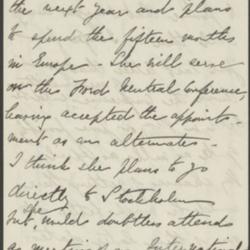 the next year and plans
to spend the fifteen months
in Europe - She will serve
on this Ford Neutral Conference
having accepted the appoint-
ment as an alternate -
I think she plans to go
directly to Stockholm
but, would doubtless attend
as meeting of an International